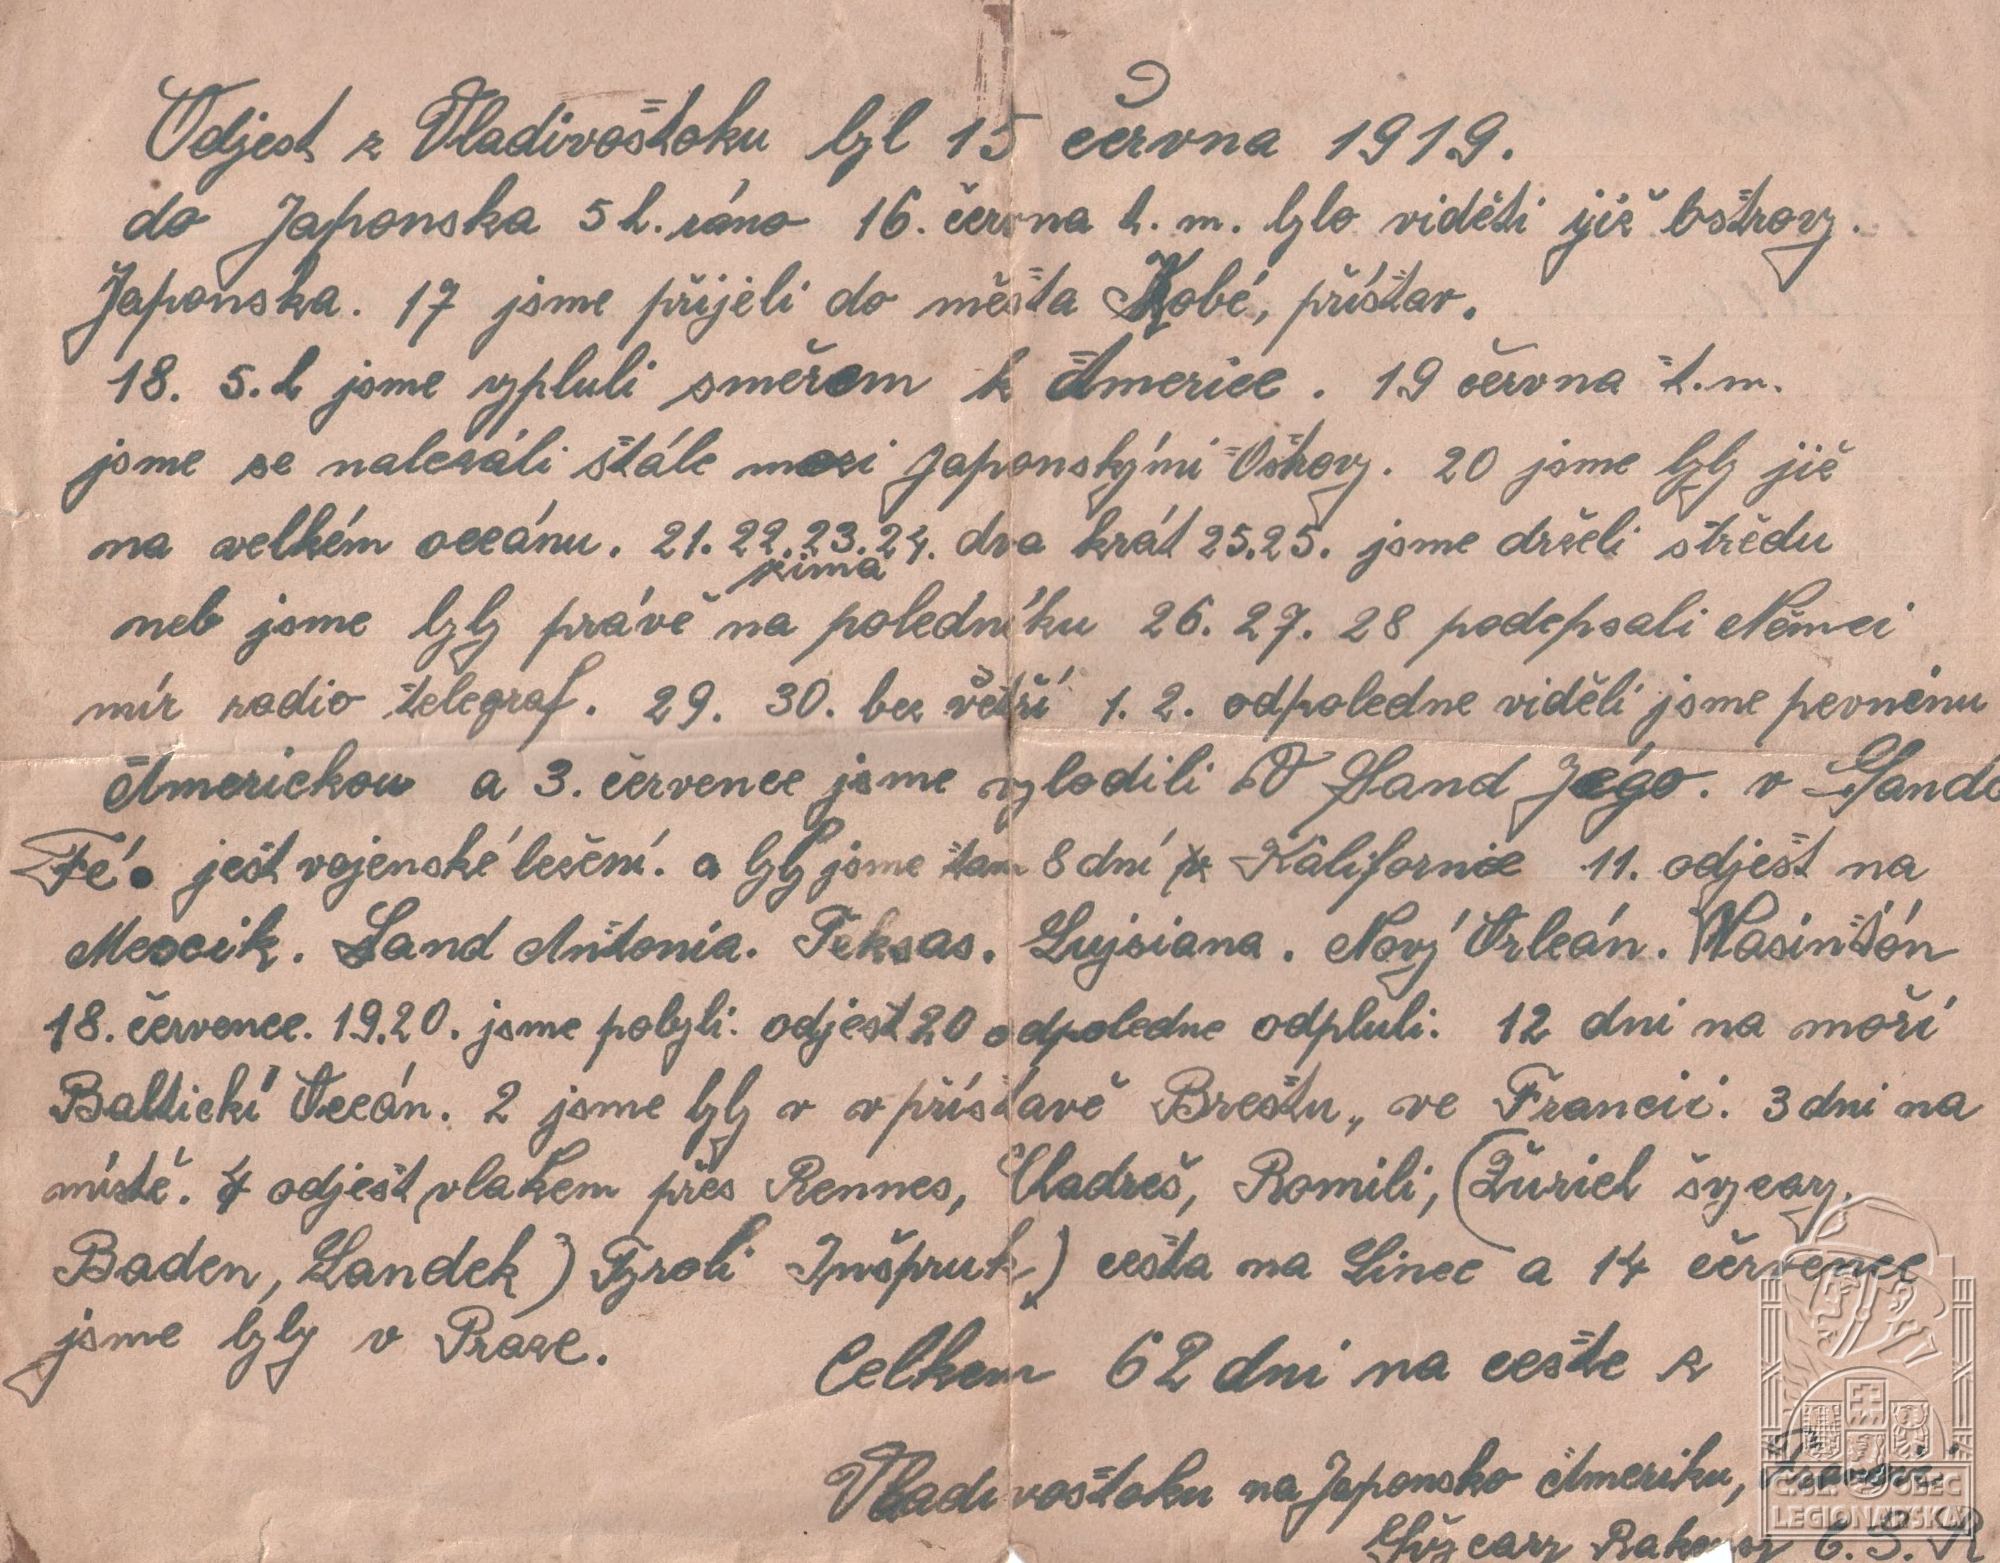 Odjest z Vladivoštoku byl 15 června 1919.
do Japonska 5 h. ráno 16. června t. m. bylo viděti již ostrovy.
Japonska. 17 jsme přijeli do města Kobé, přístav.
18. 5. h jsme vypluli směrem k Americe. 19 června t. m.
jsme se nalezáli stále mezi Japonskými Ostrovy. 20 jsme byly již
na velkém oceánu. 21. 22. 23. 24. dva krát 25.25. jsme drželi středu
zima
neb jsme byly právě na poledníku 26. 27. 28 podepsali Němci
mír radio telegraf. 29. 30. bez větší 1. 2. odpoledne viděli jsme pevnénu
Americkou a 3. července jsme vylodili V Sand Jégo. v Sando
Fé. jest vojenské ležení. a byly jsme tam 8 dní v Kalifornie 11. odjest na
Mexcik. Sand Antonia. Teksas. Lujsiana. Nový Orleán. Wasintón
18. července. 19.20. jsme pobyli. odjest 20 odpoledne odpluli. 12 dni na moři
Baltickí Oceán. 2 jsme byly v v přístavě Brestu,, ve Francii. 3 dni na
místě. 4 odjest vlakem přes Rennes, Vladreš, Romili, (Žürich švycary,
Baden, Landek) Tyroli Inšpruk,) cesta na Linec a 14 července
jsme byly v Praze.
Celkem 62 dni na ceste z
Vladivoštoku na Japonsko Ameriku,
Švycary Č. S. R
Č.SL. OBEC
LEGIONÁŘSKÁ